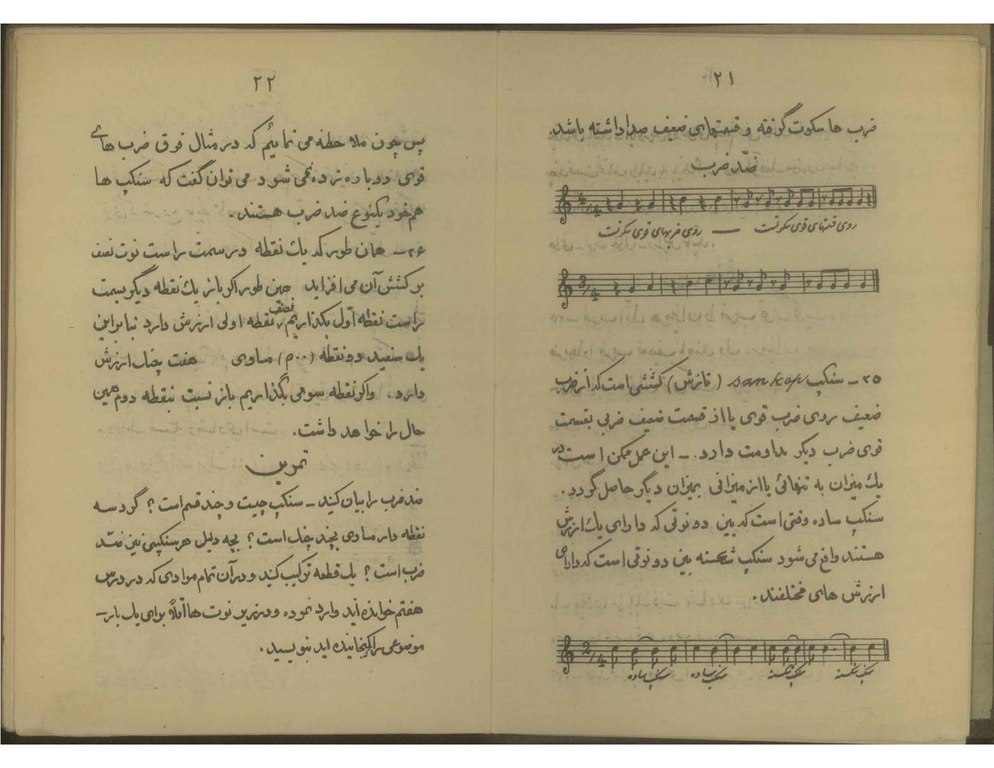 ۲۱
ضرب ها سکوت گرفته و قسمتهای ضعیف صدا داشته باشد.
ضدّ ضرب
روی ضربهای قوی سکوت — روی قسمتهای قوی سکوت
۲۵ـ سنکپ sankop (قازش) کششی است که از ضرب
ضعیف روی ضرب قوی یا از قسمت ضعیف ضربی بقسمت
قوی ضرب دیگر مداومت دارد. ـ این عمل ممکن است در
یک میزان به تنهائی یا از میزانی بمیزان دیگر حاصل گردد.
سنکپ ساده وقتی است که بین دو نوتی که دارای یک ارزش
هستند واقع می شود سنکپ شکسته بین دو نوتی است که دارای
ارزش های مختلفند.
سنکپ ساده سنکپ ساده سنکپ شکسته سنکپ شکسته
۲۲
پس چون ملاحظه می نمائیم که در مثال فوق ضرب های
قوی دوباره زده نمی شود می توان گفت که سنکپ ها
هم خود یکنوع ضد ضرب هستند.
۲۶ـ همان طور که یک نقطه در سمت راست نوت نصف
بر کشش آن می افزاید همین طور اگر باز یک نقطه دیگر بسمت
راست نقطه اوّل بگذاریم نصف نقطه اولی ارزش دارد بنابراین
یک سفید دو نقطه (..م) مساوی هفت ارزش
دارد. و اگر نقطه سومی بگذاریم باز نسبت بنقطه دوم همین
حال را خواهد داشت.
تمرین
ضد ضرب را بیان کنید ـ سنکپ چیست و چند قسم است؟ گرد سه
نقطه دار مساوی بچند چنگ است؟ بچه دلیل هر سنکپی نیز ضد
ضرب است؟ یک قطعه ترکیب کنید و در آن تمام موادی که در درس
هفتم خوانده اید وارد نموده و در زیر نوت ها اقلاً برای یک بار ـ
موضوعی را که گنجانیده اید بنویسید.